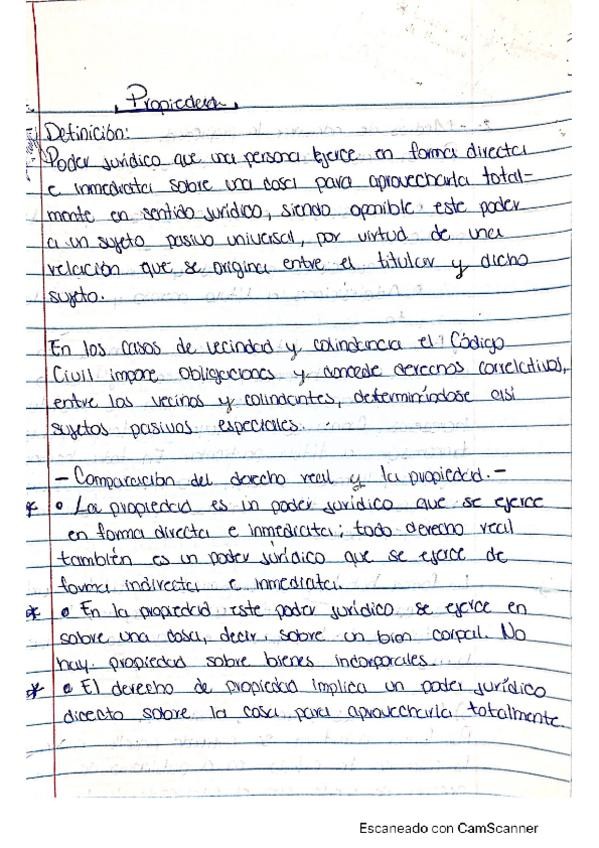 Propiedad
Definición:
Poder jurídico que una persona ejerce en forma directa
e inmediata sobre una cosa para aprovecharla total-
mente en sentido jurídico, siendo oponible este poder
a un sujeto pasivo universal, por virtud de una
relación que se origina entre el titular y dicho
sujeto.
En los casos de vecindad y colindancia el Código
Civil impone obligaciones y concede derechos correlativos,
entre los vecinos y colindantes, determinándose asi
sujetos pasivos especiales.
- Comparación del derecho real y la propiedad. -
* • La propiedad es un poder jurídico que se ejerce
en forma directa e inmediata; todo derecho real
también es un poder jurídico que se ejerce de
forma indirecta e inmediata.
* • En la propiedad este poder jurídico se ejerce en
sobre una cosa, decir, sobre un bien corpal. No
hay propiedad sobre bienes incorporales.
* • El derecho de propiedad implica un poder jurídico
directo sobre la cosa para aprovecharla totalmente.
Escaneado con CamScanner